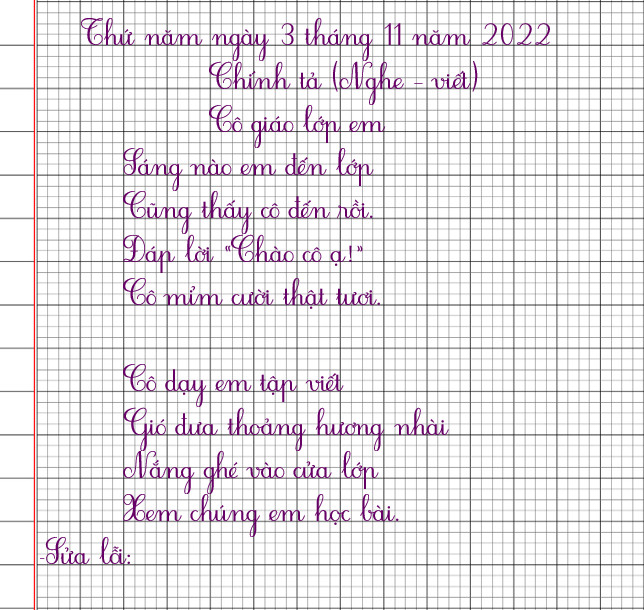 Thứ năm ngày 3 tháng 11 năm 2022
Chính tả (Nghe - viết)
Cô giáo lớp em
Sáng nào em đến lớp
Cũng thấy cô đến rồi.
Đáp lời "Chào cô ạ!"
Cô mỉm cười thật tươi.
Cô dạy em tập viết
Gió đưa thoảng hương nhài
Nắng ghé vào cửa lớp
Xem chúng em học bài.
-Sửa lỗi: